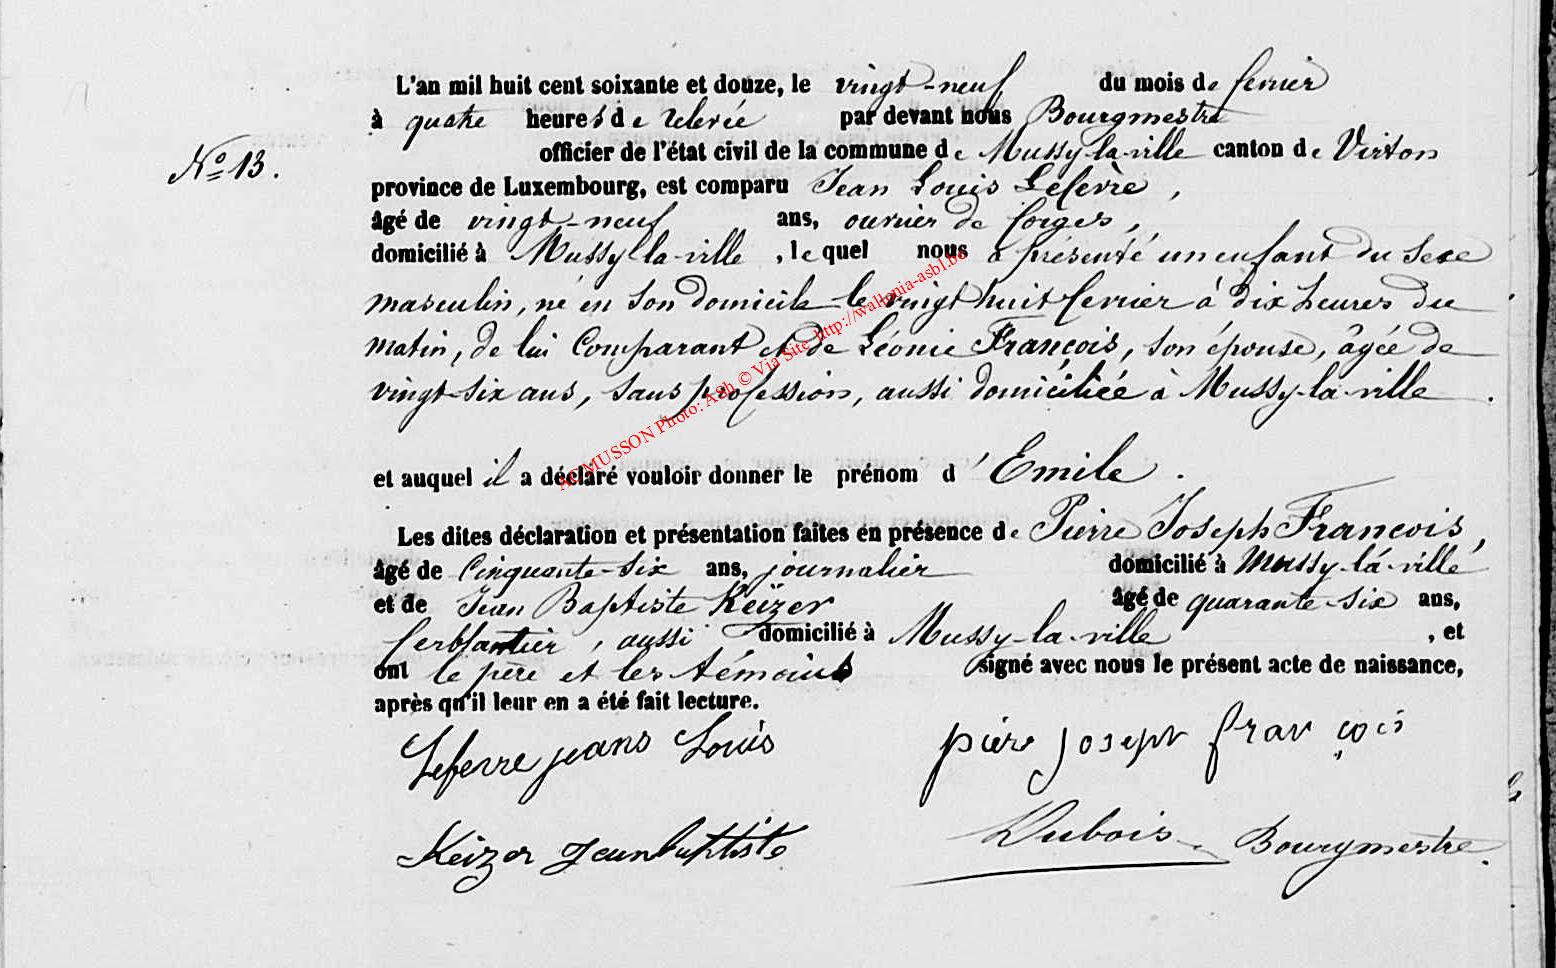 L'an mil huit cent soixante et douze, le vingt-neuf du mois de fevrier
à quatre heures de relevée par devant nous Bourgmestre
officier de l'état civil de la commune de Mussy-la-ville canton de Virton
N° 13.
province de Luxembourg, est comparu Jean Louis Lefevre,
âgé de vingt-neuf ans, ouvrier de forges,
domicilié à Mussy-la-ville, lequel nous a présenté un enfant du sexe
masculin, né en son domicile le vingt huit fevrier à dix heures du
matin, de lui Comparant et de Léonie François, son épouse, âgée de
vingt-six ans, sans profession, aussi domiciliée à Mussy-la-ville.
AC MUSSON Photo: ASh © Via Site http://wallonia-asbl.be
et auquel il a déclaré vouloir donner le prénom d'Emile.
Les dites déclaration et présentation faites en présence de Pierre Joseph François,
âgé de Cinquante-six ans, journalier domicilié à Mussy-la-ville
et de Jean Baptiste Keïzer âgé de quarante-six ans,
ferblantier, aussi domicilié à Mussy-la-ville, et
ont le père et les témoins signé avec nous le présent acte de naissance,
après qu'il leur en a été fait lecture.
Lefevre jeans Louis pière joseph françois
Keizer Jean baptiste Dubois Bourgmestre.